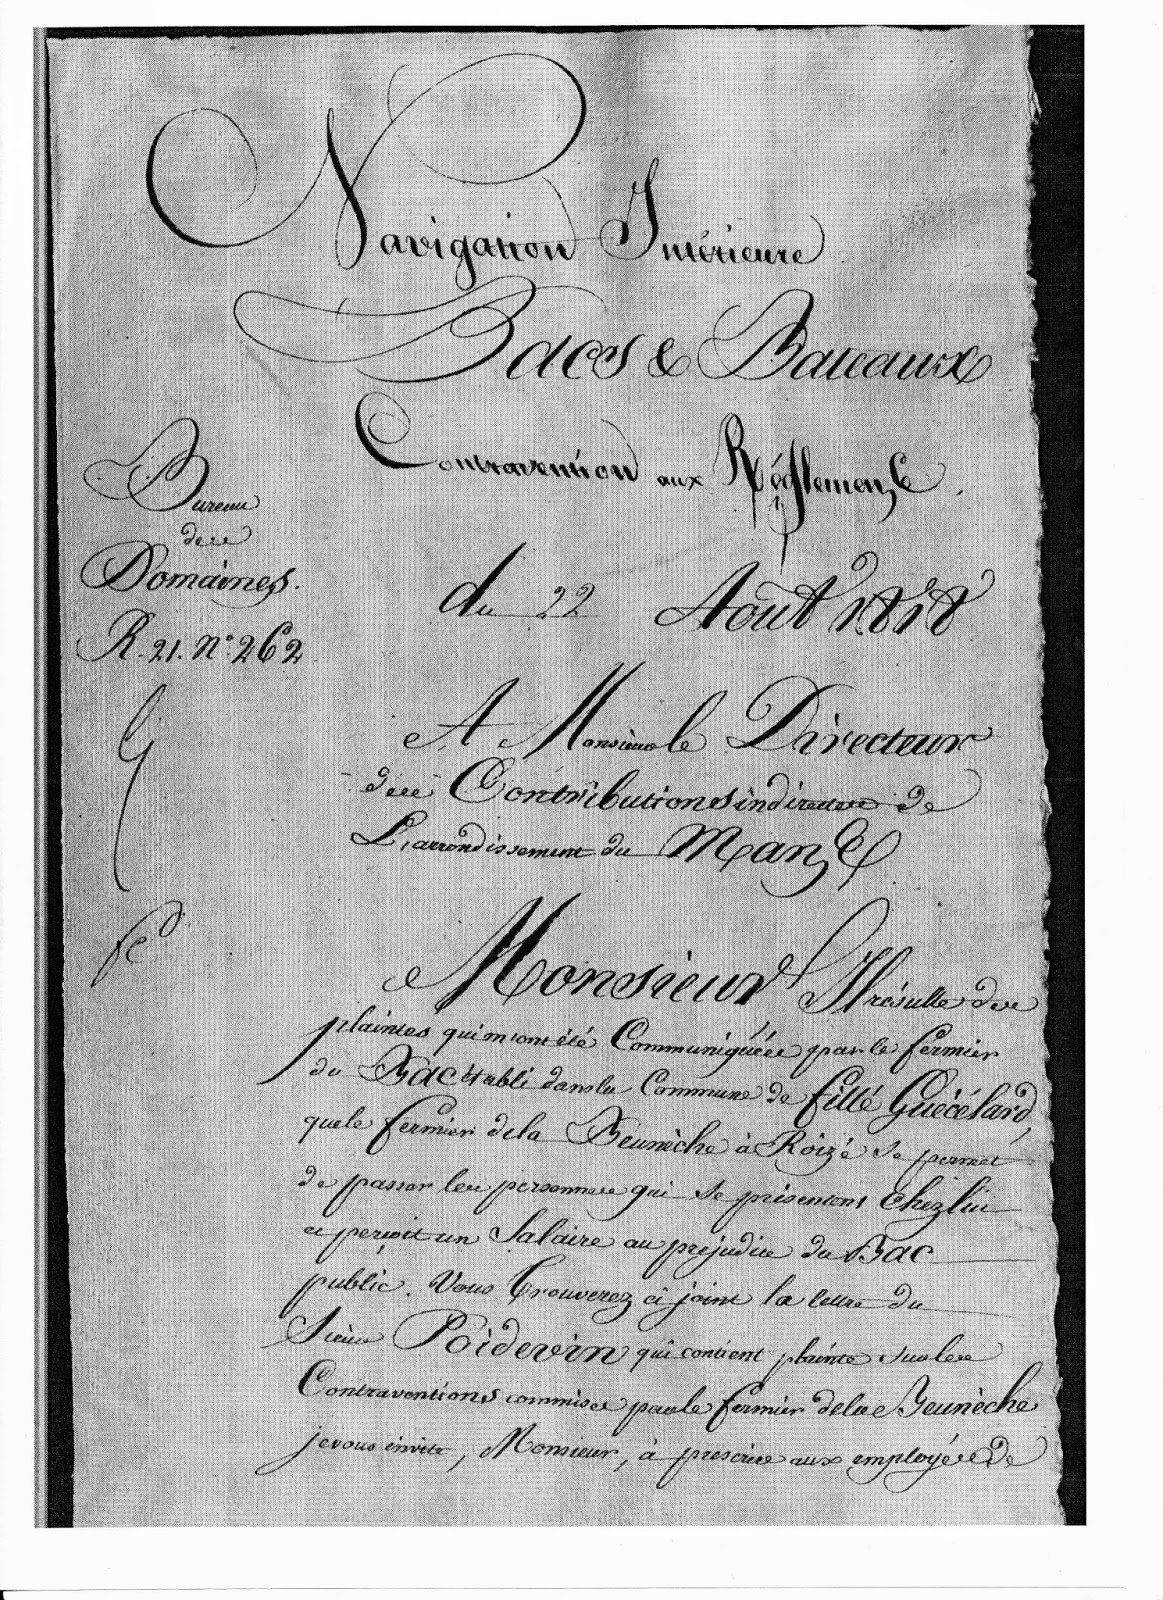 Navigation Intérieure
Bacs & Bateaux
Contravention aux Réglemens
Bureau
des
Domaines.
R. 21. N° 262
du 22 Août 1818
A Monsieur le Directeur
des Contributions indirectes de
L'arrondissement du Mans
Monsieur Il résulte des
plaintes qui m'ont été Communiquées par le fermier
du Bac établi dans la Commune de fillé Guécélard,
que le fermier de la Beunèche à Roizé se permet
de passer les personnes qui se présentent chez lui
et perçoit un Salaire au préjudice du Bac
public. Vous trouverez ci joint la lettre du
Sieur Poidevin qui contient plainte sur les
Contraventions commises par le fermier de la Beunèche
je vous invite, Monsieur, à prescrire aux employés de